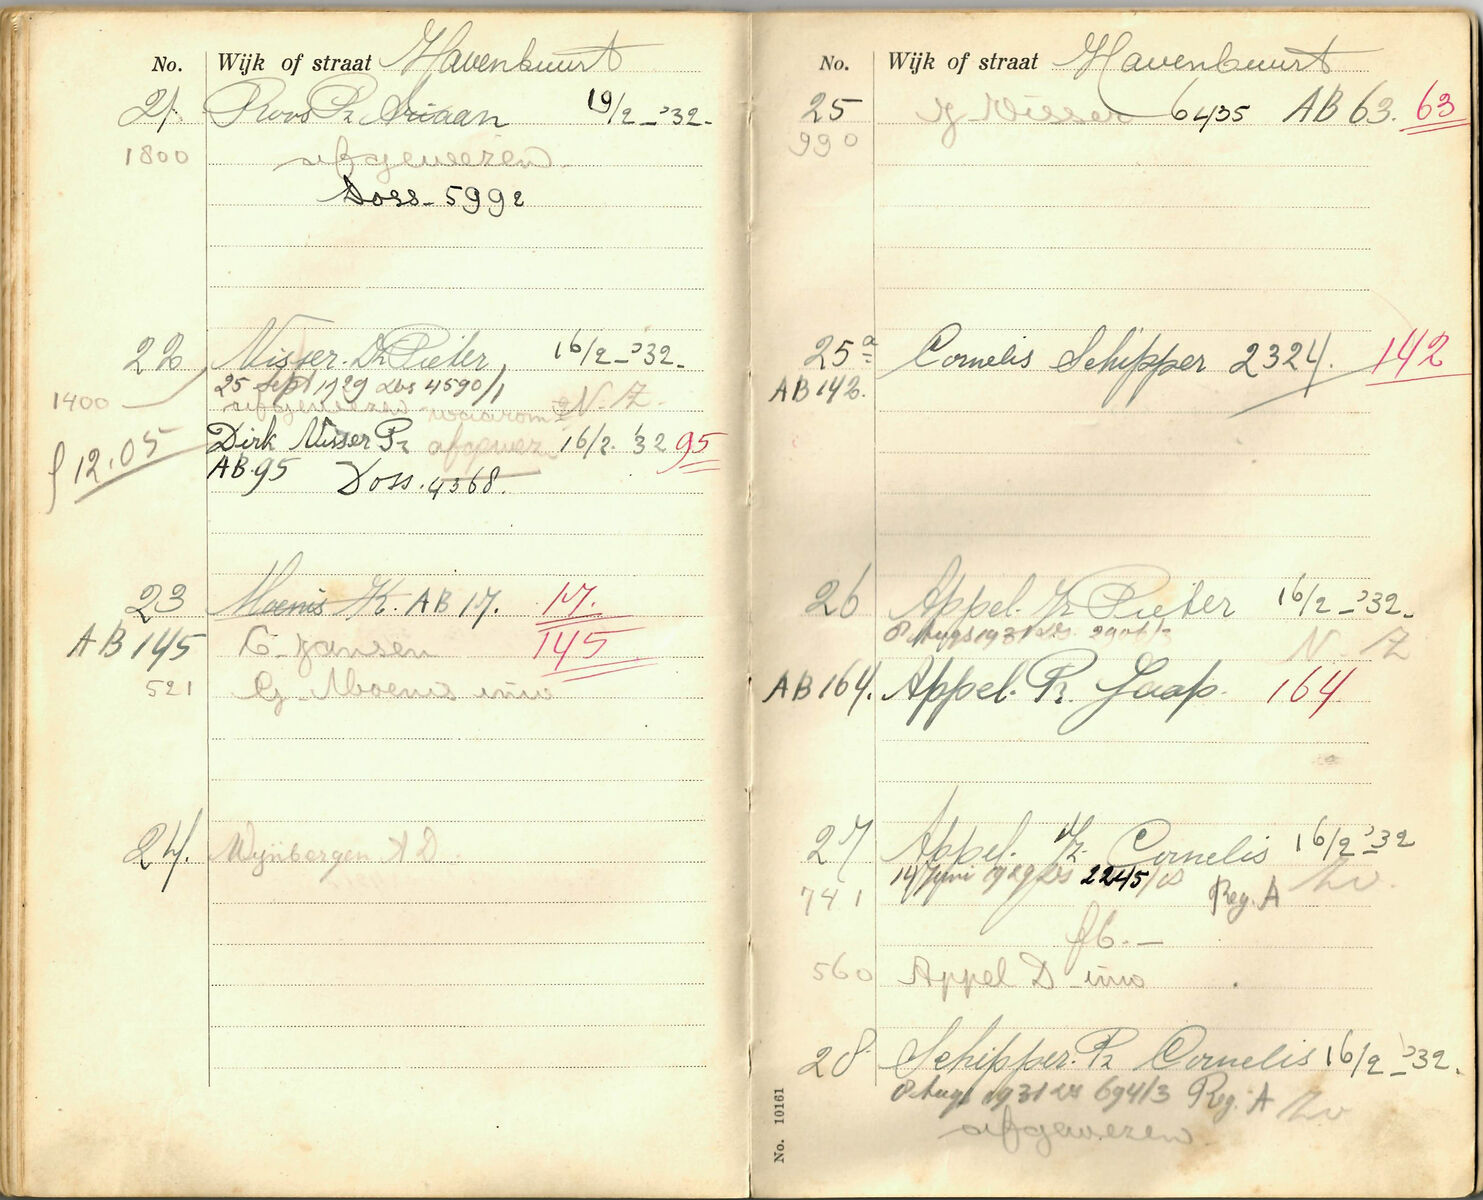 No. Wijk of straat Havenbuurt
21. Roos Pz Ariaan 19/2 - '32.
1800 afgewezen
Doss - 5992
22 Visser. Dz Pieter, 16/2 - '32.
25 sept 1929 dos 4590/1
1400 afgewezen waarom? N. Z.
f 12.05 Dirk Visser Pz afgewez 16/2. '32 95
AB.95 Doss. 4368.
23 Moenis K. AB 17. 17.
AB 145 C. Jansen 145
521 G. Moenis inw
24. Wijnbergen A D.
No. Wijk of straat Havenbuurt
25 J Visser 6435 AB 63. 63
990
25a Cornelis Schipper 2324. 142
AB 142.
26 Appel. Jz Pieter 16/2 - '32.
8 Augs 1931 N. Z
AB 164. Appel. Pz. Jaap. 164
27 Appel. Cornelis 16/2 '32
14 Juni 1929 ds 2245/ Reg. A
741
f 6. -
560 Appel D inw
28. Schipper. Pz Cornelis 16/2 - '32.
8 Augs 1931 ds 694/3 Reg. A
afgewezen
No. 10161